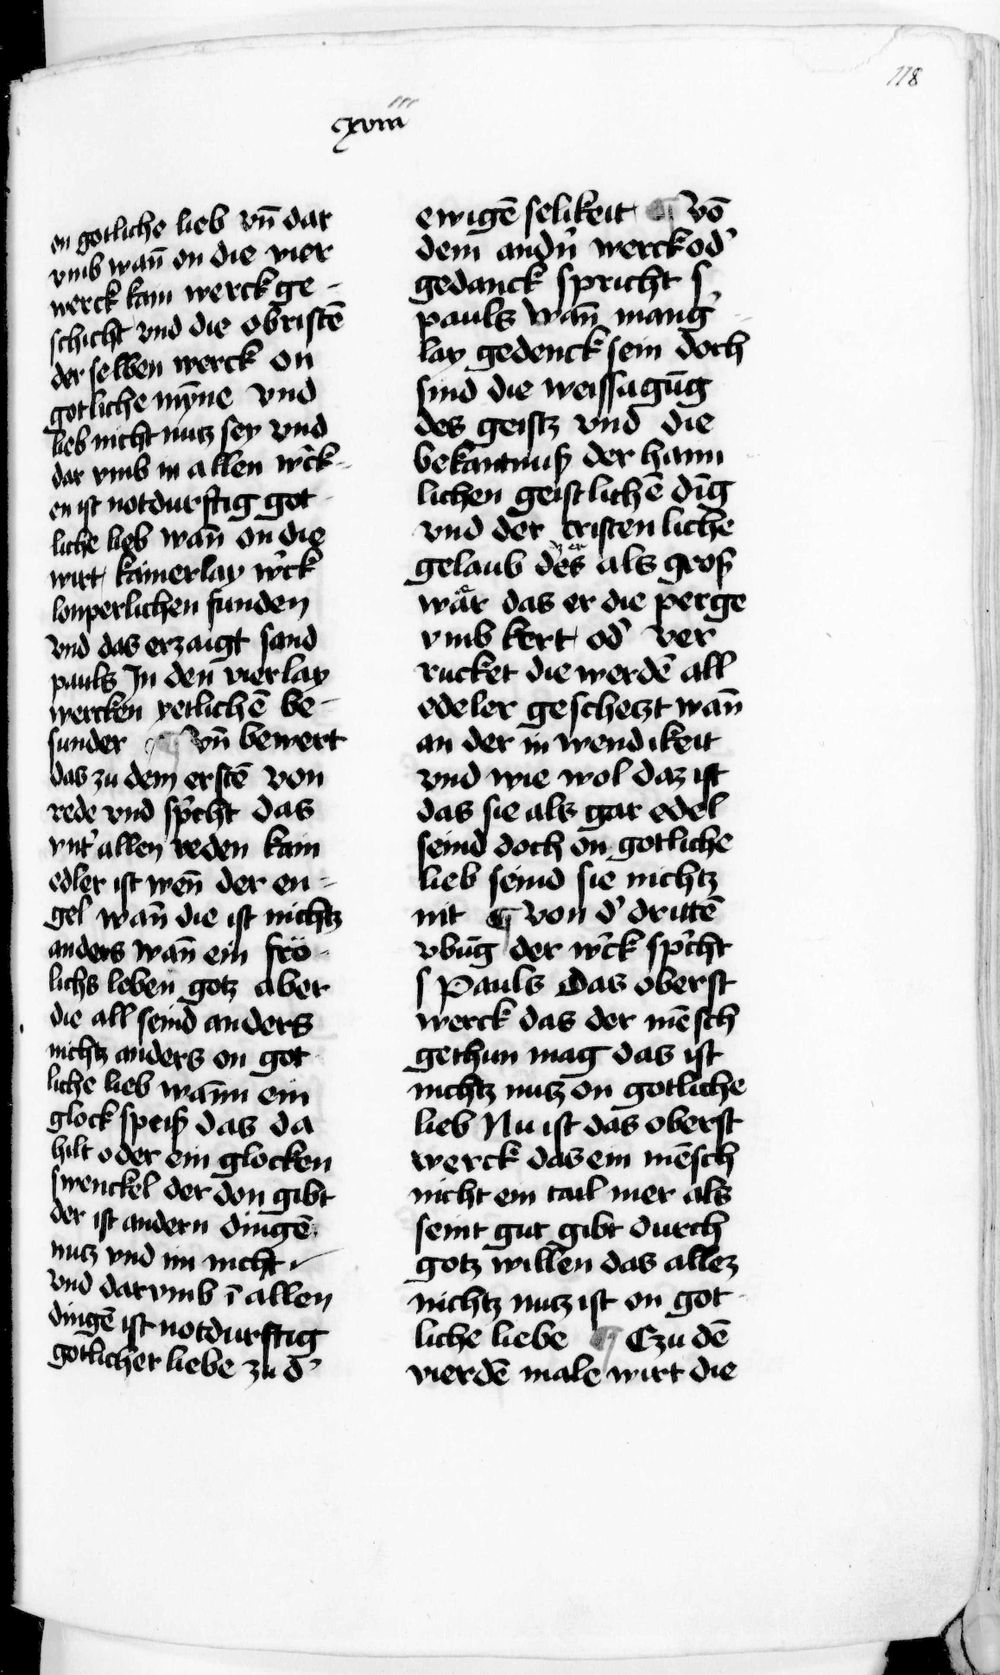 118
cxviii
en gotliche lieb vn̄ dar
vmb wan̄ on die vier
werck kain werck ge-
schicht vnd die obristē
der selben werck on
gotliche mȳne vnd
lieb nicht nutz sey vnd
dar vmb in allen w̓ck-
en ist notdurftig got
liche lieb wan̄ on die
wirt kainerlay w̓ck
lonperlichen funden
vnd das erzaigt sand
pauls In den vierlay
wercken yetlichē be-
sunder ¶ vn̄ bewert
das zu dem erstē von
rede vnd sp̓cht das
vnt̓ allen reden kain
edler ist wen̄ der en-
gel wan̄ die ist nichtz
anders wan̄ ein frö-
lichs leben gotz aber
die all seind anders
nichtz anders on got
liche lieb wān ein
glock speiß das da
hilt oder ein glocken
swenckel der don gibt
der ist andern dingē
nutz vnd im nicht
vnd darvmb ī allen
dingē ist notdurftig
gotlicher liebe zu d̓
ewigē selikeit ¶ Vō
dem andn̓ werck od̓
gedanck spricht s
pauls wan̄ mang̓
lay gedenck sein doch
sind die weissagūg
des geistz vnd die
bekantnuß der haim
lichen geistlichē dīg
vnd der cristenliche
gelaub des als groß
wär das er die perge
vmb kert od̓ ver
rucket die werdē all
edeler geschetzt wan̄
an der inwendikeit
vnd wie wol daz ist
das sie als gar edel
seind doch on gotliche
lieb seind sie nichtz
nit ¶ von d̓ drittē
vbūg der w̓ck sp̓cht
s Pauls Das oberst
werck das der mēsch
gethun mag das ist
nichtz nutz on gotliche
lieb Nu ist das oberst
werck das ein mēsch
nicht ein tail mer als
seint gut gibt durch
gotz willen das allez
nichtz nutz ist on got
liche liebe ¶ Czu dē
vierdē male wirt die